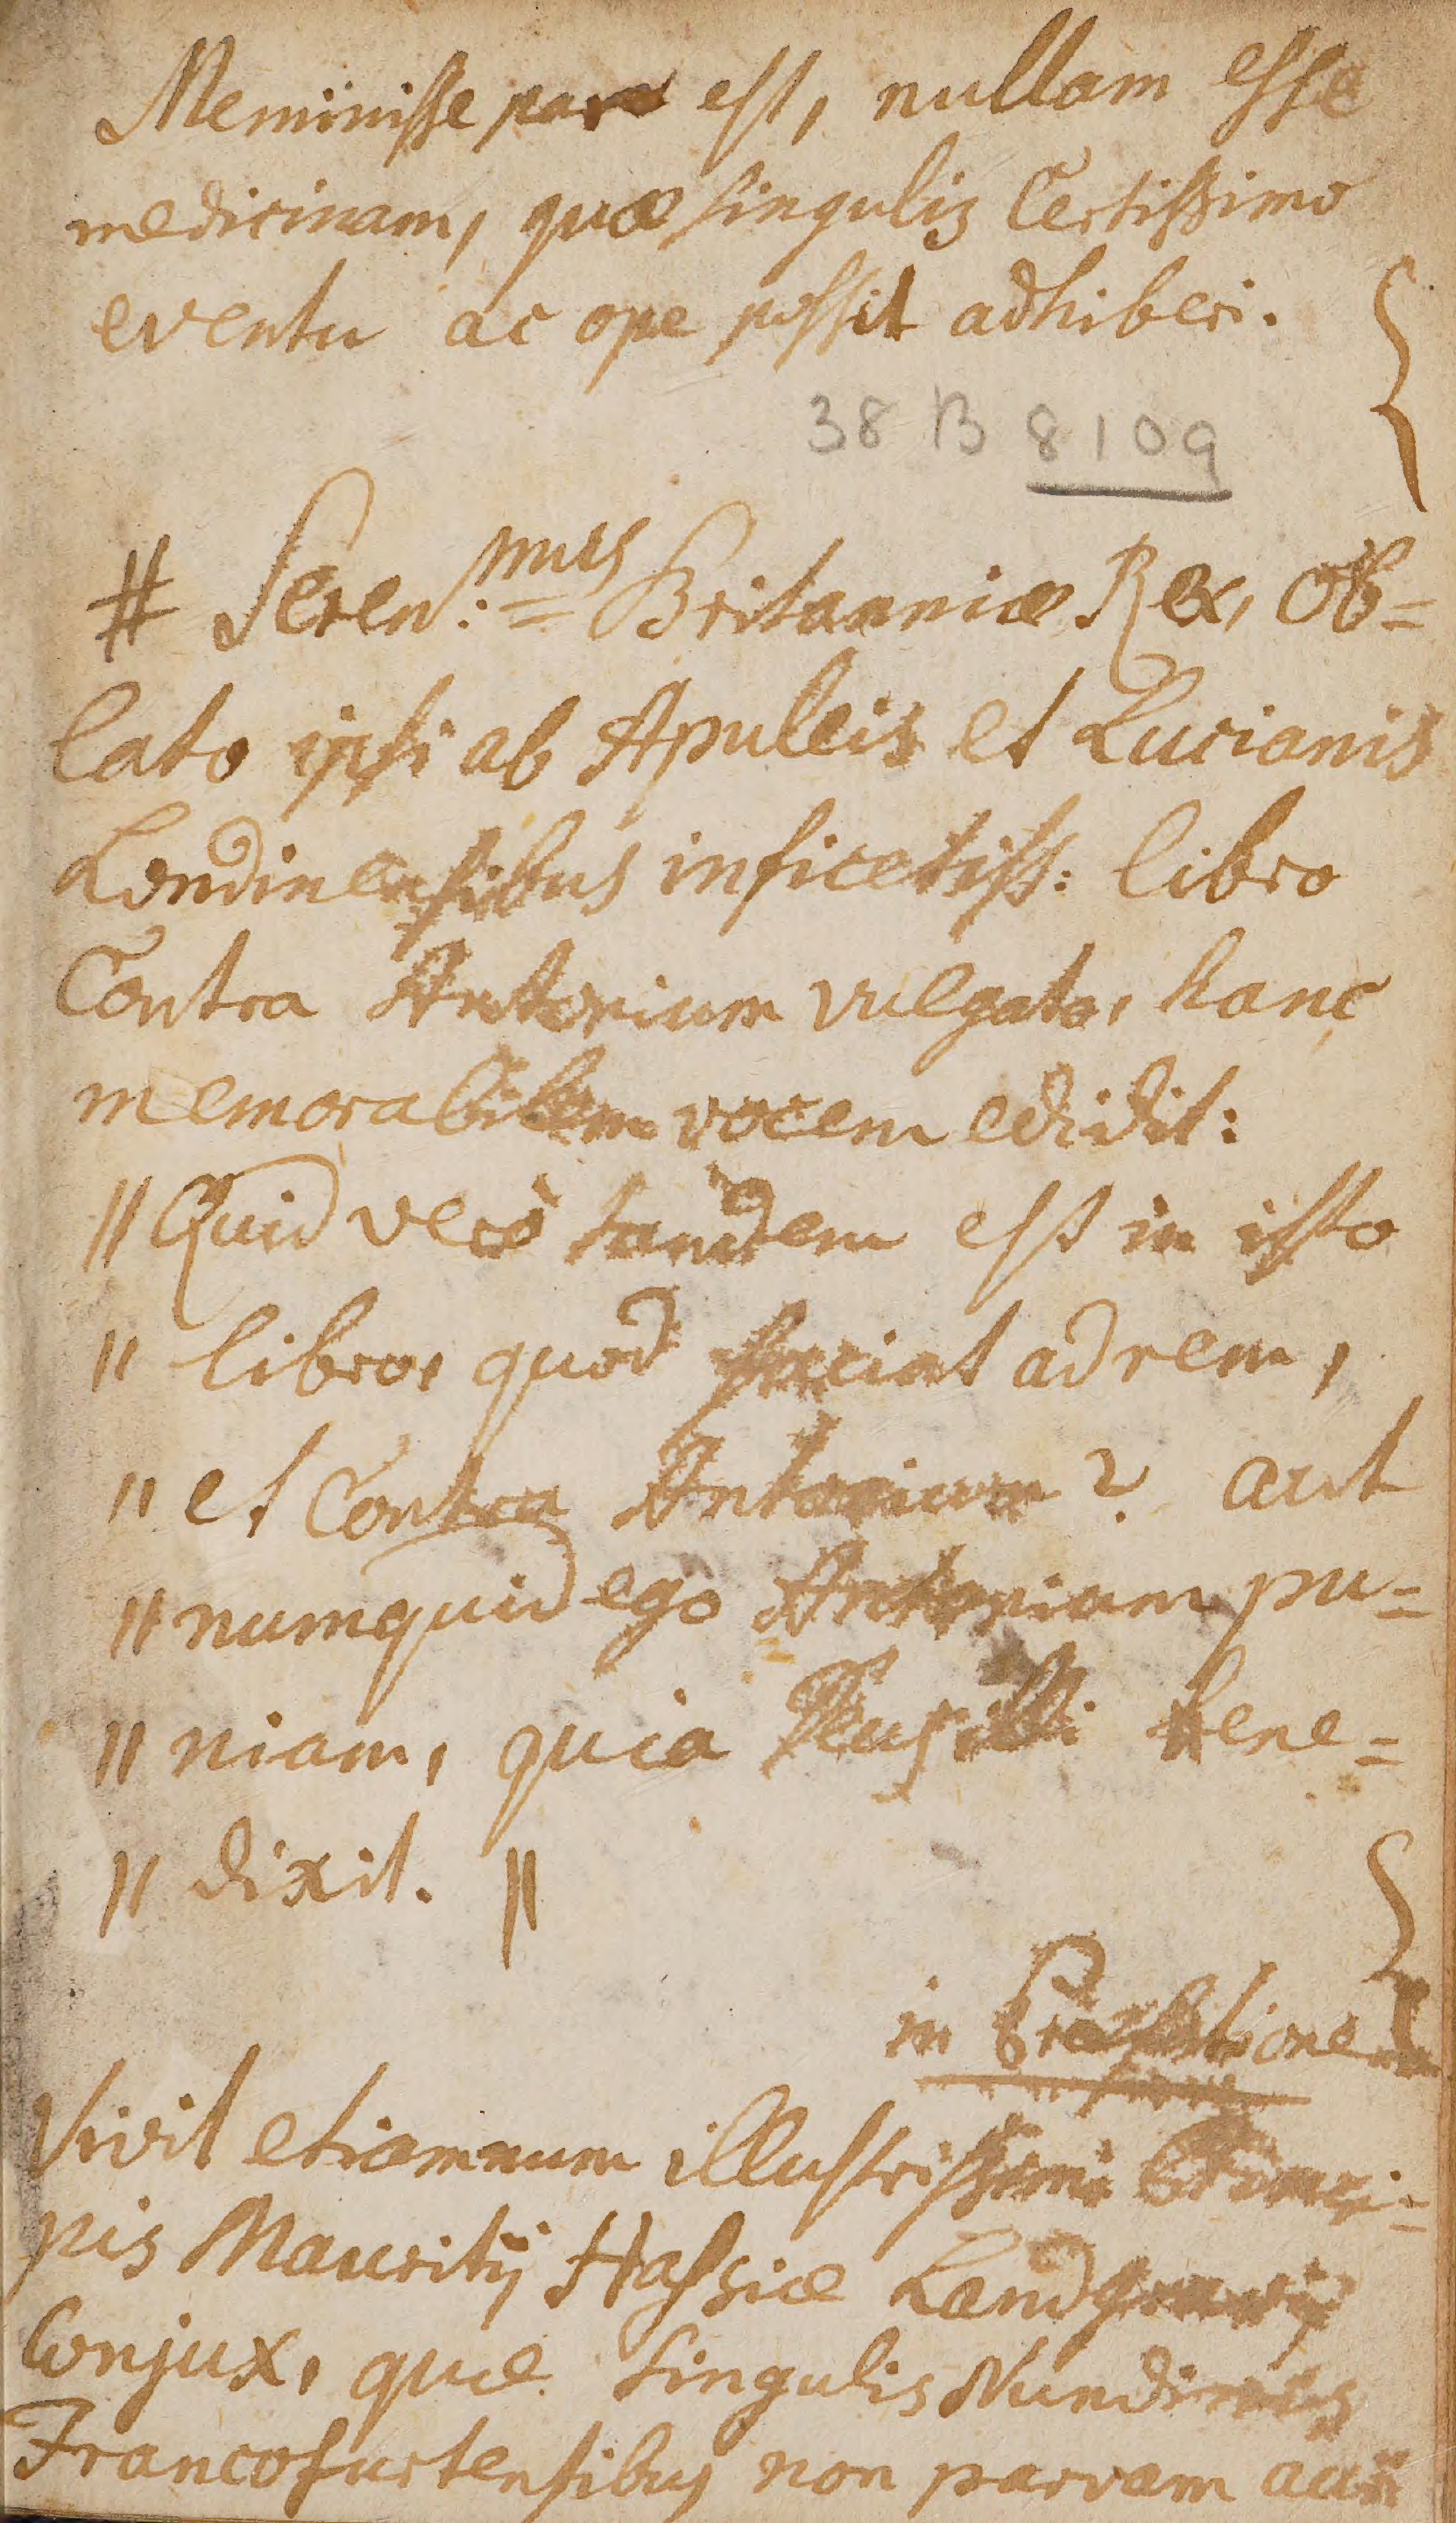 Meminisse par est, nullam esse
medicinam, quæ singulis Certissimo
eventu ac ope possit adhiberi.
38 B 8109
# Seren:mus Britanniæ Rex, Ob=
lato ipsi ab Apuleis et Lucianis
Londinensibus inficetiss: libro
Contra Antonium vulgato, hanc
memorabilem vocem edidit:
" Quid verò tandem est in isto
" libro, quod faciat ad rem,
" et Contra Antonium? aut
" numquid ego Antonium pu=
" niam, quia illi bene=
" dixit. "
in Præfatione
Vivit etiamnum illustrissimi Princi=
pis Mauritij Hassiæ Landgravij
Conjux, quæ singulis Nundinis
Francofurtensibus non parvam